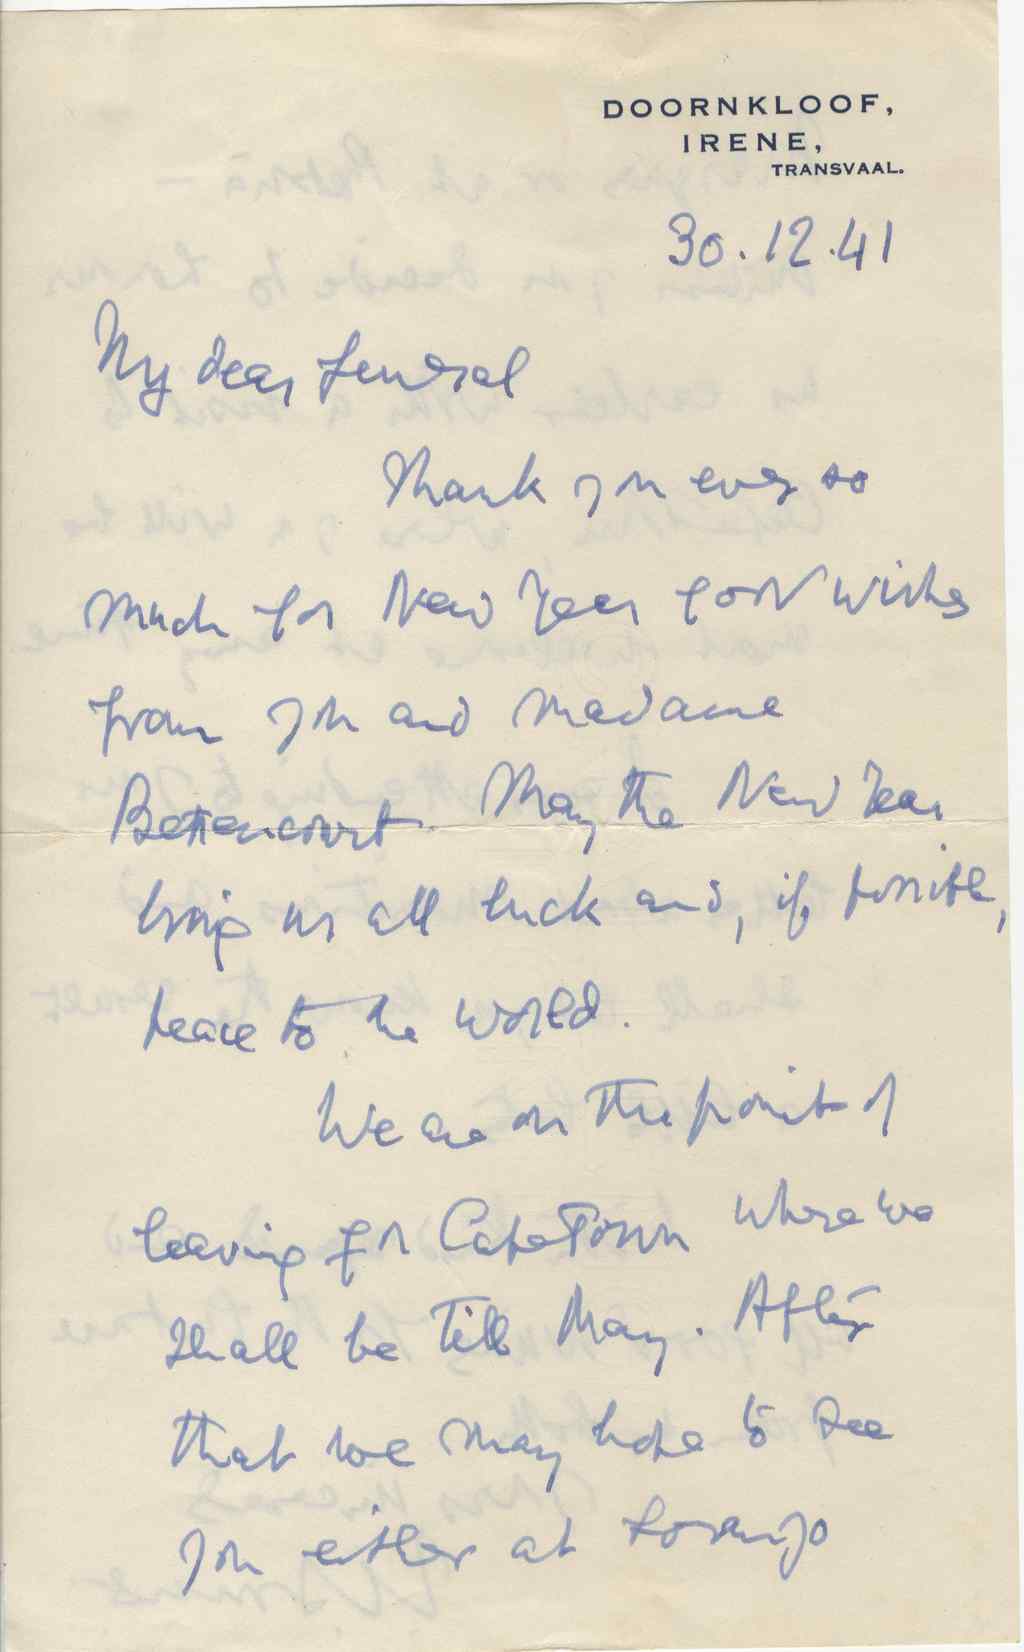 DOORNKLOOF,
IRENE,
TRANSVAAL.
30.12.41
My dear General
Thank you ever so
much for New Year good wishes
from you and Madame
Bettencourt. May the New Year
bring us all luck and, if possible,
peace to the world.
We are on the point of
leaving for Cape Town where we
shall be till May. After
that we may hope to see
you either at Lourenço